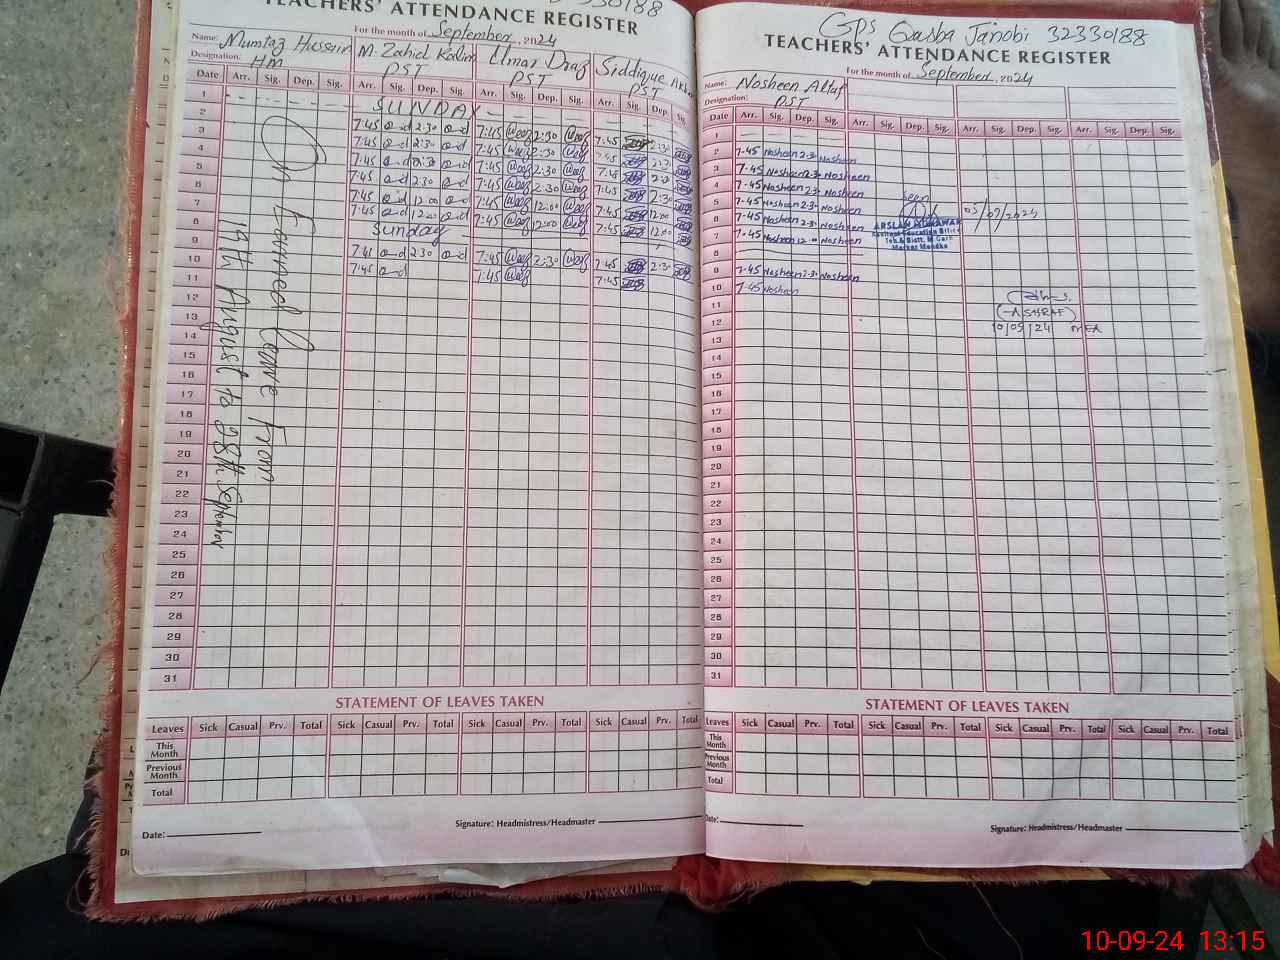 32330188
TEACHERS' ATTENDANCE REGISTER
For the month of September, 2024
Name: Mumtaz Hussain M. Zahid Kalim Umar Draz Siddique
Designation: HM PST PST PST
Date Arr. Sig. Dep. Sig. Arr. Sig. Dep. Sig. Arr. Sig. Dep. Sig. Arr. Sig. Dep. Sig.
1 SUNDAY
2 7:45 2:30 7:45 2:30 7:45 2:30
3 7:45 2:30 7:45 2:30 7:45
4 7:45 2:30 7:45 2:30 7:45
5 7:45 2:30 7:45 2:30 7:45 2:30
6 7:45 12:00 7:45 12:00 7:45 12:00
7 7:45 12:00 7:45 12:00 7:45 12:00
8 Sunday
9 7:45 2:30 7:45 2:30 7:45 2:30
10 7:45 7:45 7:45
11
12
13
14
15
16
17
18
19
20
21
22
23
24
25
26
27
28
29
30
31
On Earned Leave From
19th August to 28th September
STATEMENT OF LEAVES TAKEN
Leaves Sick Casual Prv. Total Sick Casual Prv. Total Sick Casual Prv. Total Sick Casual Prv. Total
This Month
Previous Month
Total
Date:
Signature: Headmistress/Headmaster
GPS Qasba Janobi 32330188
TEACHERS' ATTENDANCE REGISTER
For the month of September, 2024
Name: Nosheen Altaf
Designation: PST
Date Arr. Sig. Dep. Sig. Arr. Sig. Dep. Sig. Arr. Sig. Dep. Sig. Arr. Sig. Dep. Sig.
1
2 7:45 Nosheen 2:30 Nosheen
3 7:45 Nosheen 2:30 Nosheen
4 7:45 Nosheen 2:30 Nosheen
5 7:45 Nosheen 2:30 Nosheen
6 7:45 Nosheen 2:30 Nosheen
7 7:45 Nosheen 12:00 Nosheen
8
9 7:45 Nosheen 2:30 Nosheen
10 7:45 Nosheen
11
12
13
14
15
16
17
18
19
20
21
22
23
24
25
26
27
28
29
30
31
Seen
05/09/2024
ARSLAN
Assistant Education Officer
Markaz
(ASHRAF)
10/09/24 MEA
STATEMENT OF LEAVES TAKEN
Leaves Sick Casual Prv. Total Sick Casual Prv. Total Sick Casual Prv. Total Sick Casual Prv. Total
This Month
Previous Month
Total
Date:
Signature: Headmistress/Headmaster
10-09-24 13:15